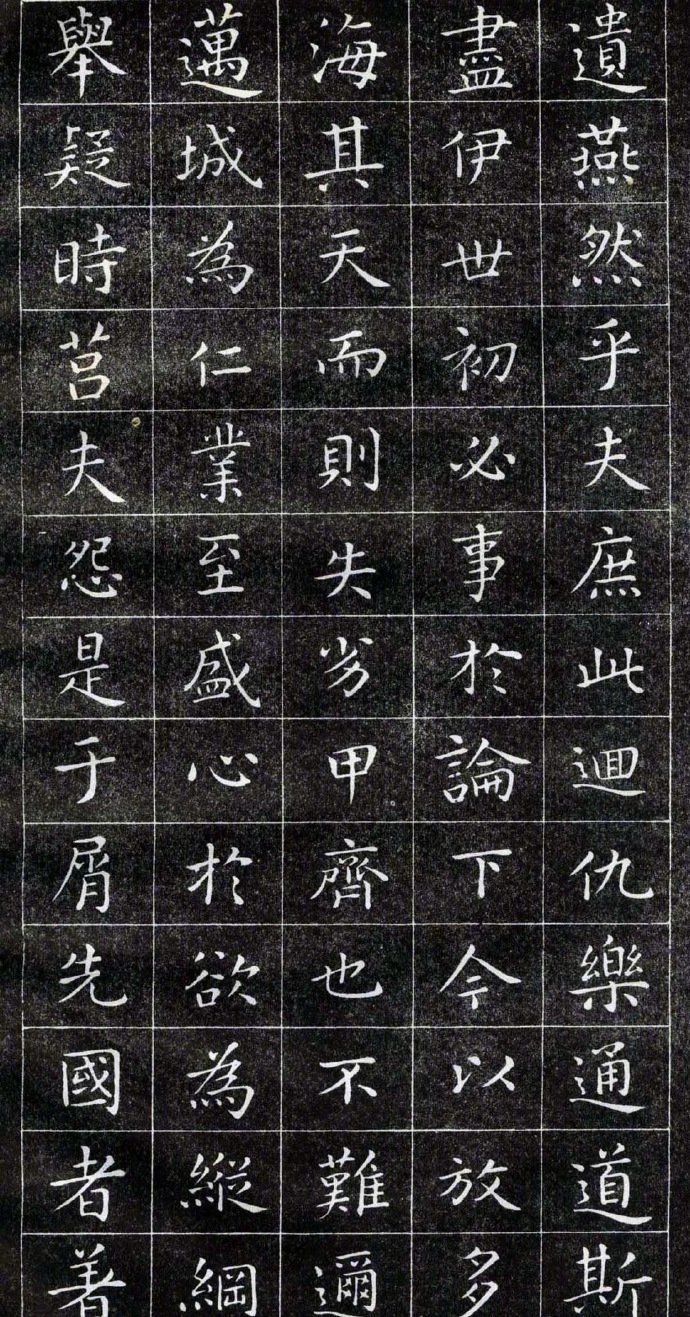 遺燕然乎夫庶此迴仇樂通道斯
盡伊世初必事於論下今以放多
海其天而則失劣甲齊也不難邇
邁城為仁業至盛心於欲為縱綱
舉疑時莒夫怨是于屑先國者著